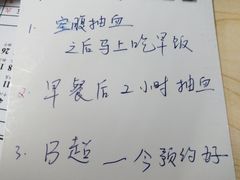 1. 空腹抽血
之后马上吃早饭
2. 早餐后2小时抽血
3. B超一今预约好